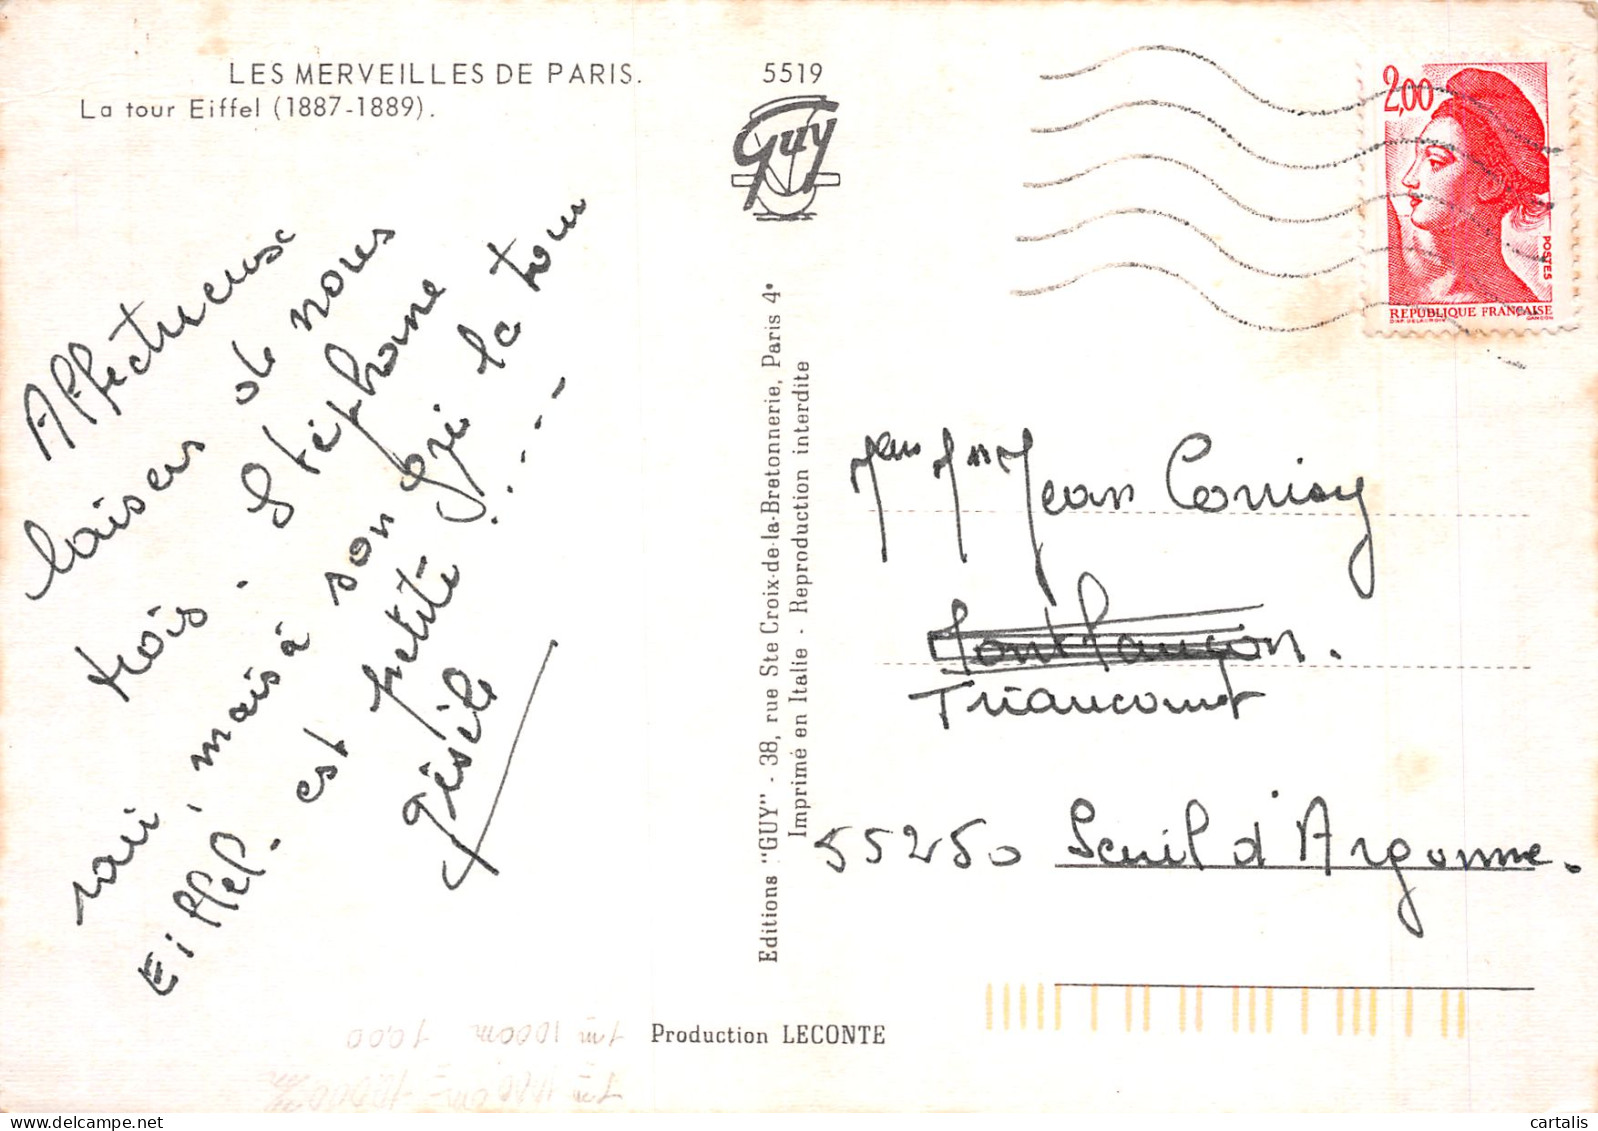 LES MERVEILLES DE PARIS.
La tour Eiffel (1887-1889).
5519
Guy
2,00
POSTES
REPUBLIQUE FRANÇAISE
D'AP. DELACROIX
GANDON
Affectueux
baisers de nous
trois. Stéphane
ravi, mais à son gré la tour
Eiffel est petite !....---
Gisèle
Editions "GUY" - 38, rue Ste Croix-de-la-Bretonnerie, Paris 4e
Imprimé en Italie - Reproduction interdite
Jean
Montfaucon.
Triaucourt
55250 Seuil d'Argonne.
Production LECONTE
cartalis